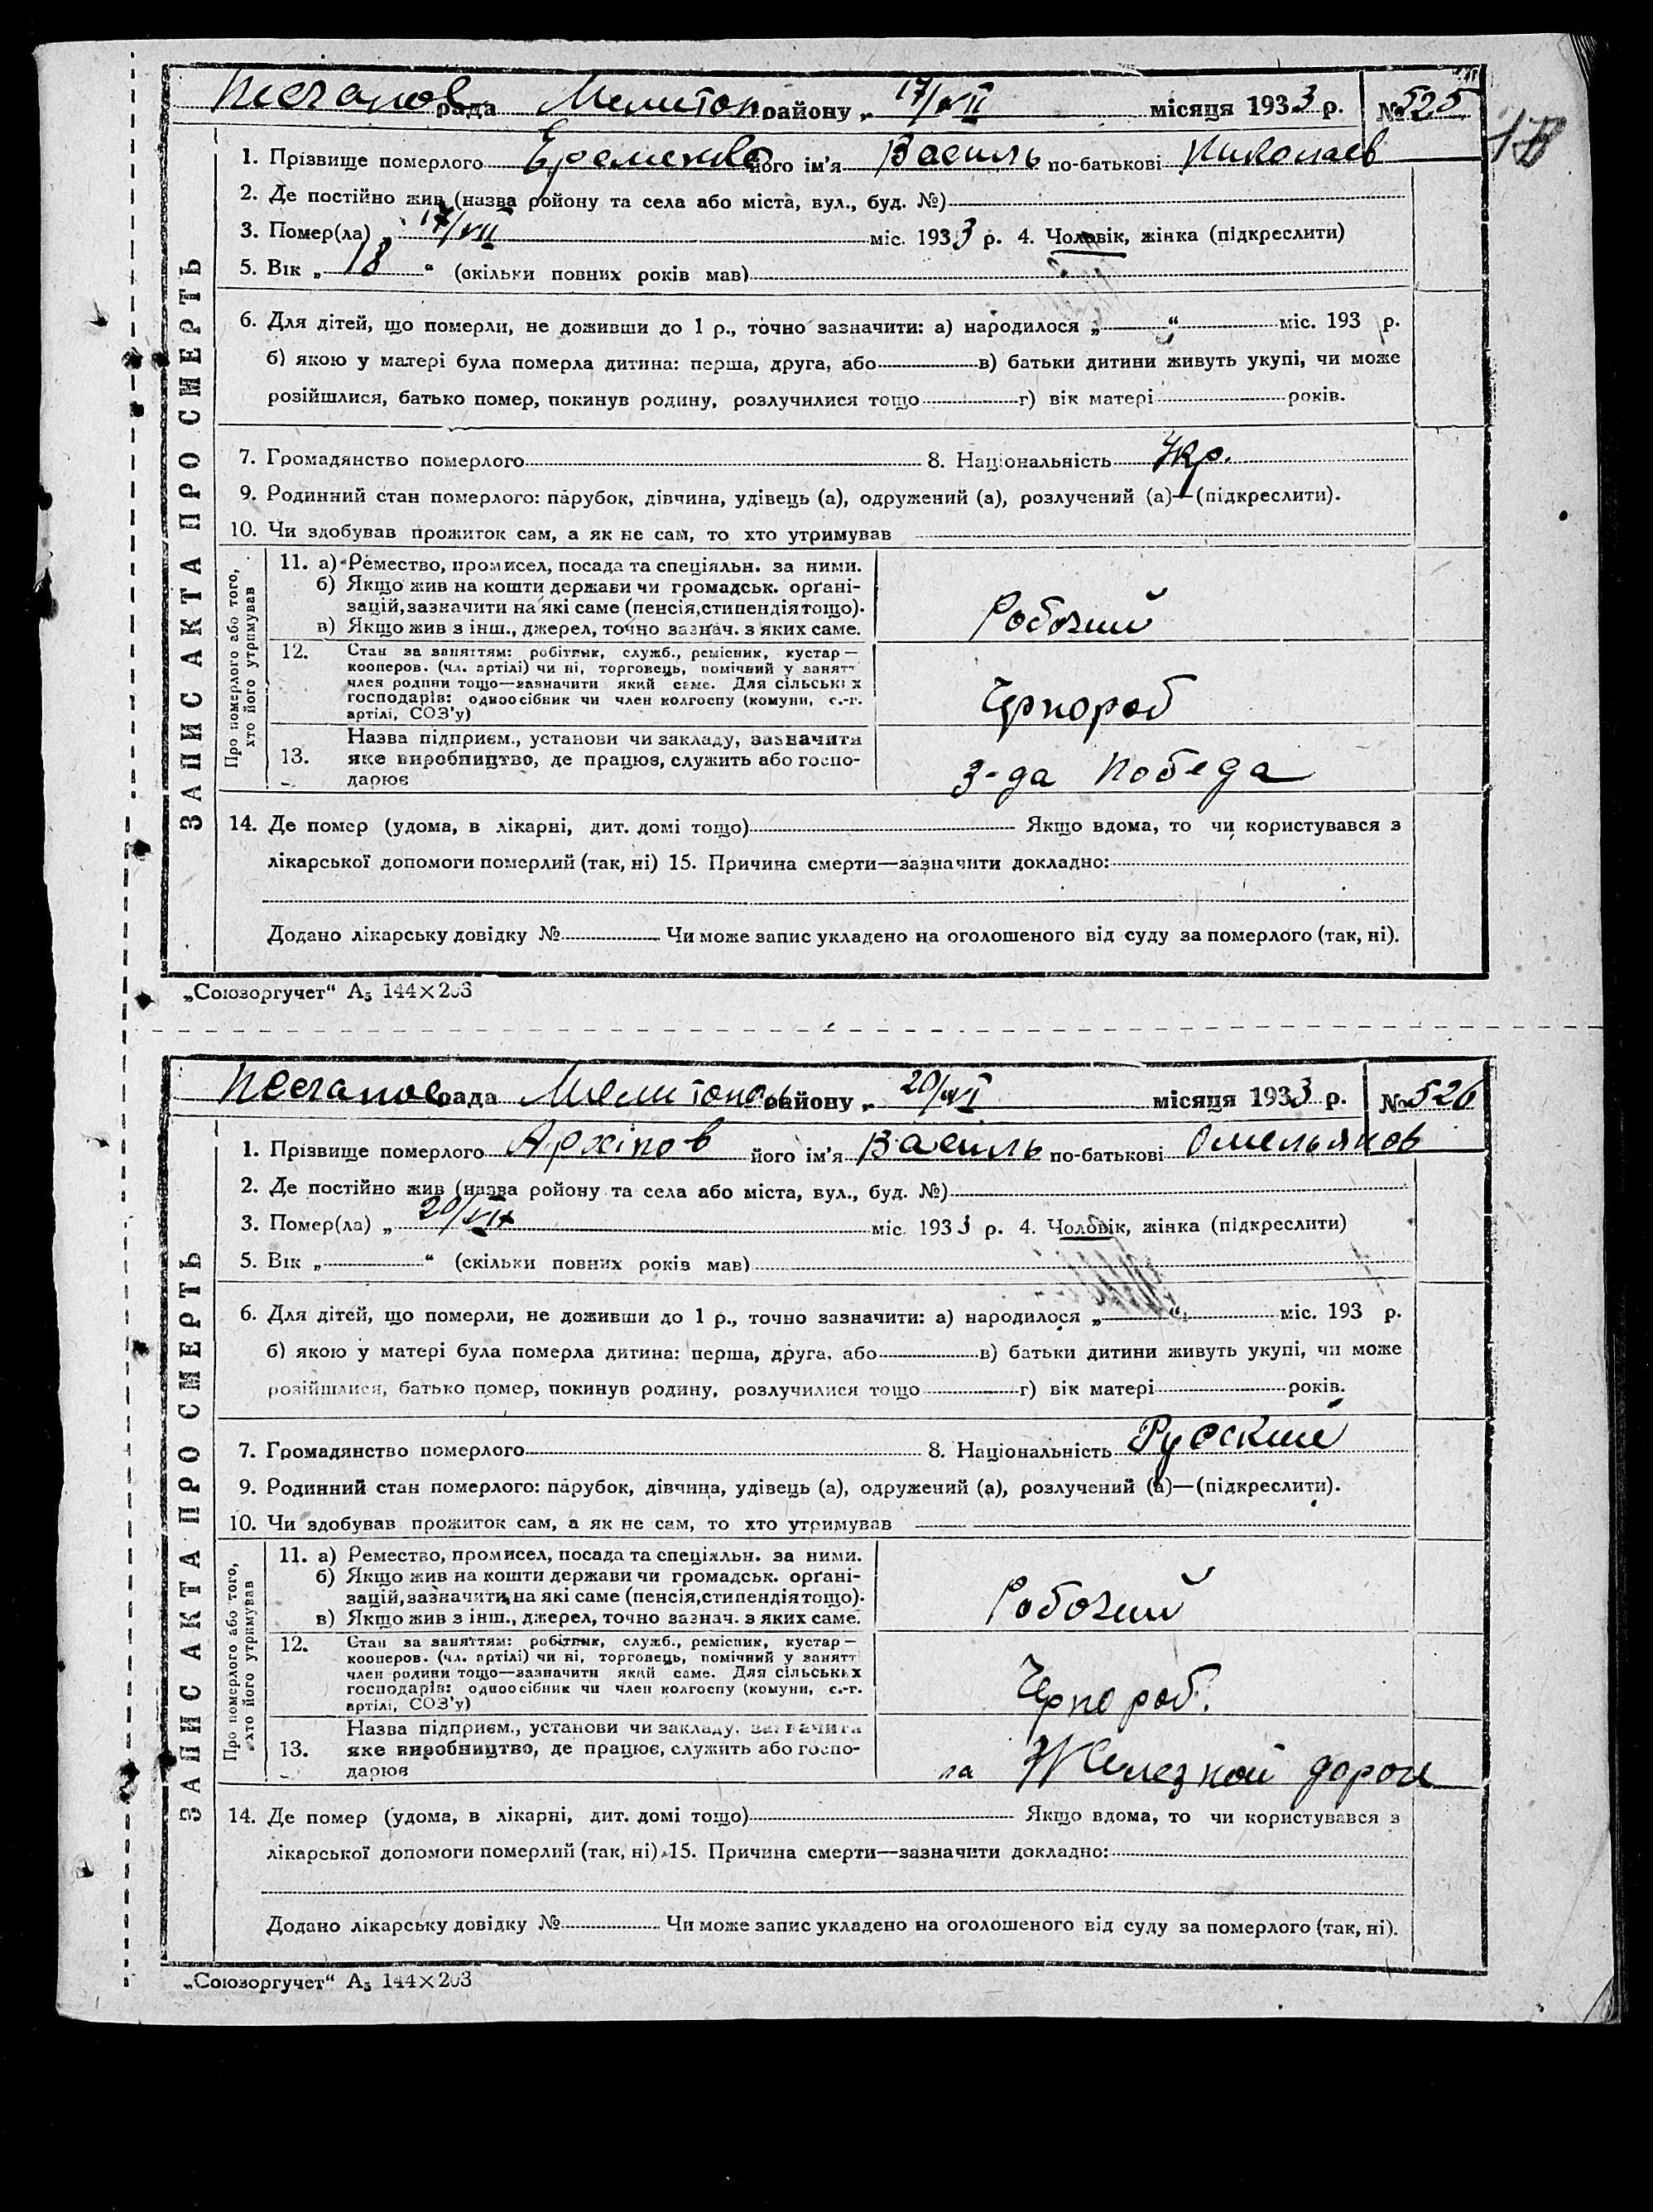 Песчанов рада Мелитоп району „ 17/VII місяця 1933 р. № 525
1. Прізвище померлого Еременко його ім'я Василь по-батькові Николаев
2. Де постійно жив (назва ройону та села або міста, вул., буд. №)
3. Помер(ла) „ 17/VII міс. 1933 р. 4. Чоловік, жінка (підкреслити)
5. Вік „ 18 “ (скільки повних років мав)
6. Для дітей, що померли, не доживши до 1 р., точно зазначити: а) народилося „ “ міс. 193 р.
б) якою у матері була померла дитина: перша, друга, або в) батьки дитини живуть укупі, чи може
розійшлися, батько помер, покинув родину, розлучилися тощо г) вік матері років.
7. Громадянство померлого 8. Національність Укр.
9. Родинний стан померлого: парубок, дівчина, удівець (а), одружений (а), розлучений (а)—(підкреслити).
10. Чи здобував прожиток сам, а як не сам, то хто утримував
ЗАПИС АКТА ПРО СМЕРТЬ
Про померлого або того,
хто його утримував
11. а) Ремество, промисел, посада та спеціяльн. за ними.
б) Якщо жив на кошти держави чи громадськ. орґані-
зацій, зазначити на які саме (пенсія, стипендія тощо).
в) Якщо жив з інш., джерел, точно зазнач. з яких саме.
Робочий
12. Стан за заняттям: робітник, служб., ремісник, кустар—
кооперов. (чл. артілі) чи ні, торговець, помічний у занятт
член родини тощо—зазначити який саме. Для сільських
господарів: одноосібник чи член колгоспу (комуни, с.-г.
артілі, СОЗ'у)
Чернороб
13. Назва підприєм., установи чи закладу, зазначити
яке виробництво, де працює, служить або госпо-
дарює
З-да Победа
14. Де помер (удома, в лікарні, дит. домі тощо) Якщо вдома, то чи користувався з
лікарської допомоги померлий (так, ні) 15. Причина смерти—зазначити докладно:
Додано лікарську довідку № Чи може запис укладено на оголошеного від суду за померлого (так, ні).
„Союзоргучет“ А₅ 144×203
Песчанов рада Мелитопол району „ 20/VII місяця 1933 р. № 526
1. Прізвище померлого Архіпов його ім'я Василь по-батькові Омельянов
2. Де постійно жив (назва ройону та села або міста, вул., буд. №)
3. Помер(ла) „ 20/VII міс. 1933 р. 4. Чоловік, жінка (підкреслити)
5. Вік „ “ (скільки повних років мав)
6. Для дітей, що померли, не доживши до 1 р., точно зазначити: а) народилося „ “ міс. 193 р.
б) якою у матері була померла дитина: перша, друга, або в) батьки дитини живуть укупі, чи може
розійшлися, батько помер, покинув родину, розлучилися тощо г) вік матері років.
7. Громадянство померлого 8. Національність Русский
9. Родинний стан померлого: парубок, дівчина, удівець (а), одружений (а), розлучений (а)—(підкреслити).
10. Чи здобував прожиток сам, а як не сам, то хто утримував
ЗАПИС АКТА ПРО СМЕРТЬ
Про померлого або того,
хто його утримував
11. а) Ремество, промисел, посада та спеціяльн. за ними.
б) Якщо жив на кошти держави чи громадськ. орґані-
зацій, зазначити на які саме (пенсія, стипендія тощо).
в) Якщо жив з інш., джерел, точно зазнач. з яких саме.
Робочий
12. Стан за заняттям: робітник, служб., ремісник, кустар—
кооперов. (чл. артілі) чи ні, торговець, помічний у занятт
член родини тощо—зазначити який саме. Для сільських
господарів: одноосібник чи член колгоспу (комуни, с.-г.
артілі, СОЗ'у)
Чернороб.
13. Назва підприєм., установи чи закладу, зазначити
яке виробництво, де працює, служить або госпо-
дарює
на Железной дороге
14. Де помер (удома, в лікарні, дит. домі тощо) Якщо вдома, то чи користувався з
лікарської допомоги померлий (так, ні) 15. Причина смерти—зазначити докладно:
Додано лікарську довідку № Чи може запис укладено на оголошеного від суду за померлого (так, ні).
„Союзоргучет“ А₅ 144×203